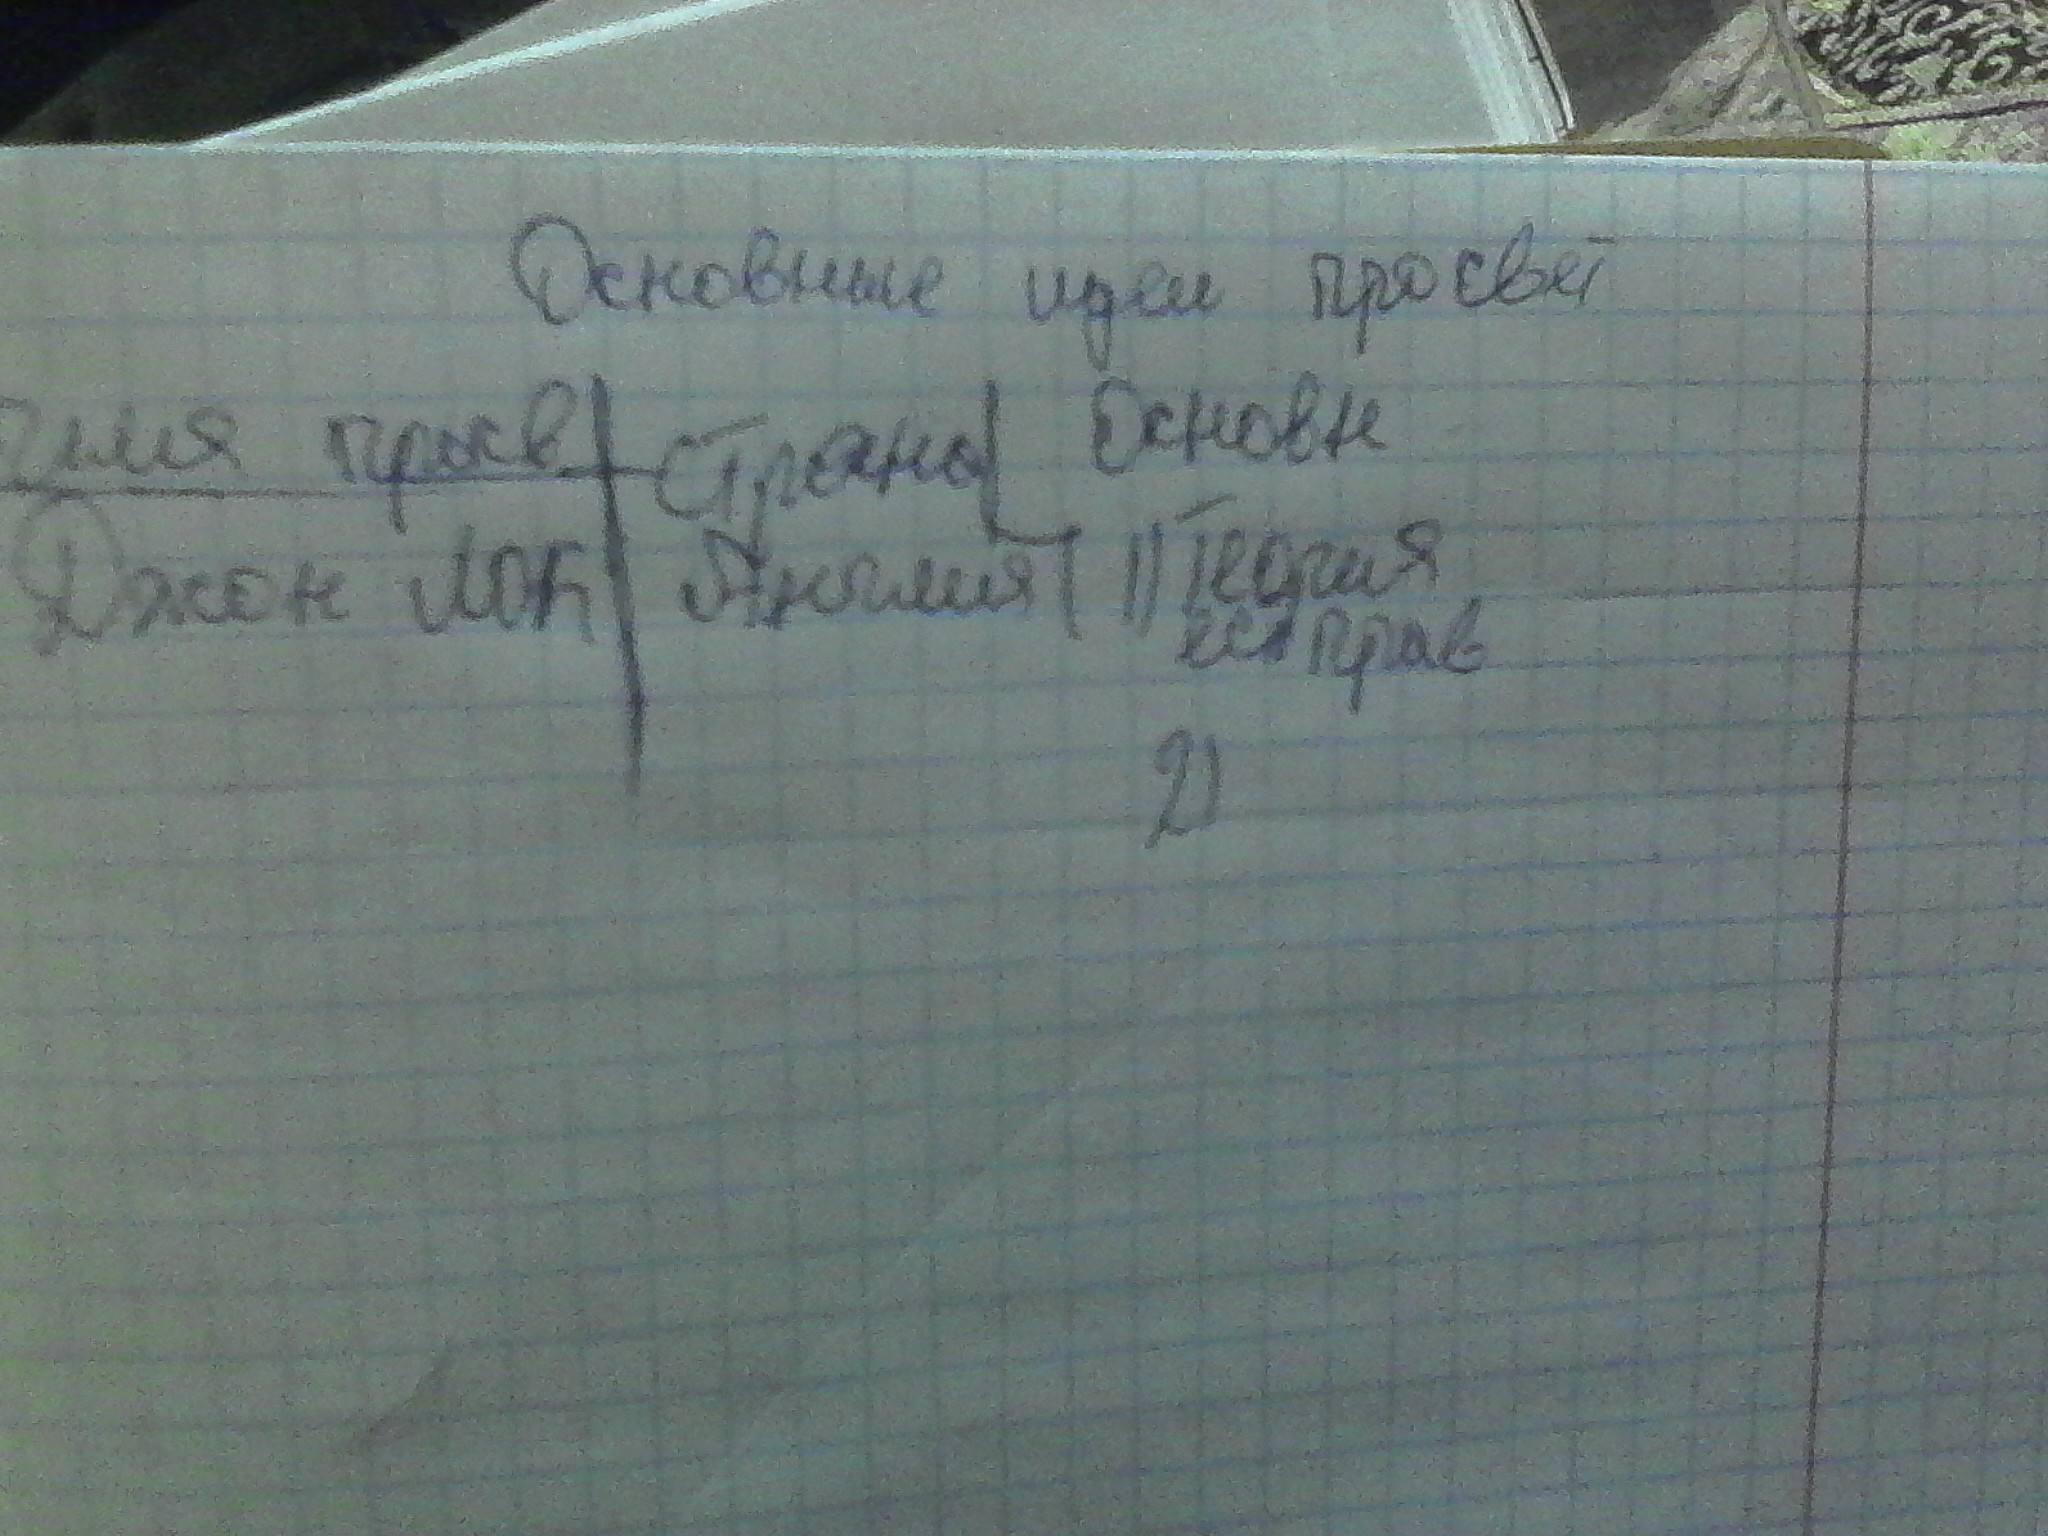 Основные идеи просвет
Имя просв Страна Основн
Джон Лок Англия 1) Теория
ест прав
2)